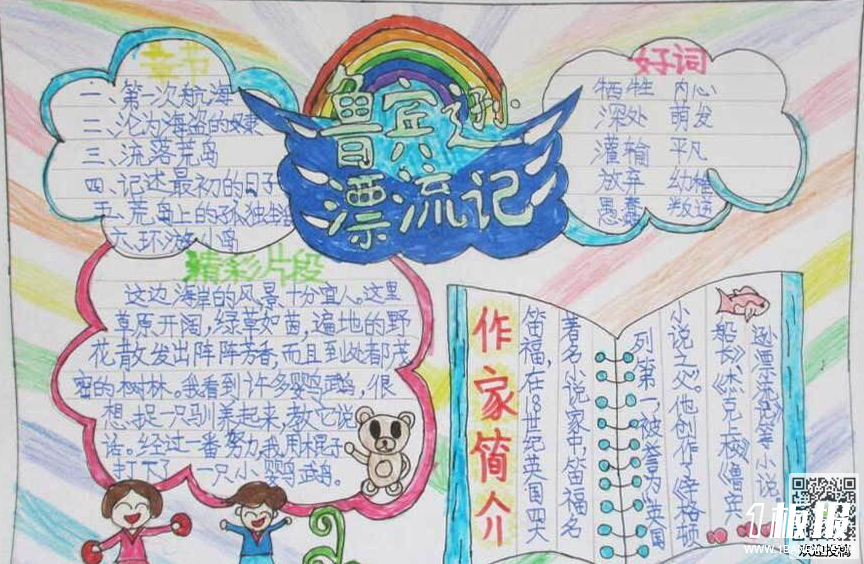 鲁宾逊
漂流记
章节
一、第一次航海
二、沦为海盗的奴隶
三、流落荒岛
四、记述最初的日子
五、荒岛上的孤独
六、环游小岛
好词
牺牲 内心
深处 萌发
灌输 平凡
放弃 幼稚
愚蠢 叛逆
精彩片段
这边海岸的风景十分宜人。这里
草原开阔,绿草如茵,遍地的野
花散发出阵阵芳香,而且到处都茂
密的树林。我看到许多鹦鹉,很
想捉一只驯养起来,教它说
话。经过一番努力,我用棍子
打下了一只小鹦鹉。
作家简介
笛福,在18世纪英国四大
著名小说家中,笛福名
列第一,被誉为英国
小说之父。他创作《辛格顿
船长》《杰克上校》《鲁宾
逊漂流记》等小说。
板报
欢迎投稿